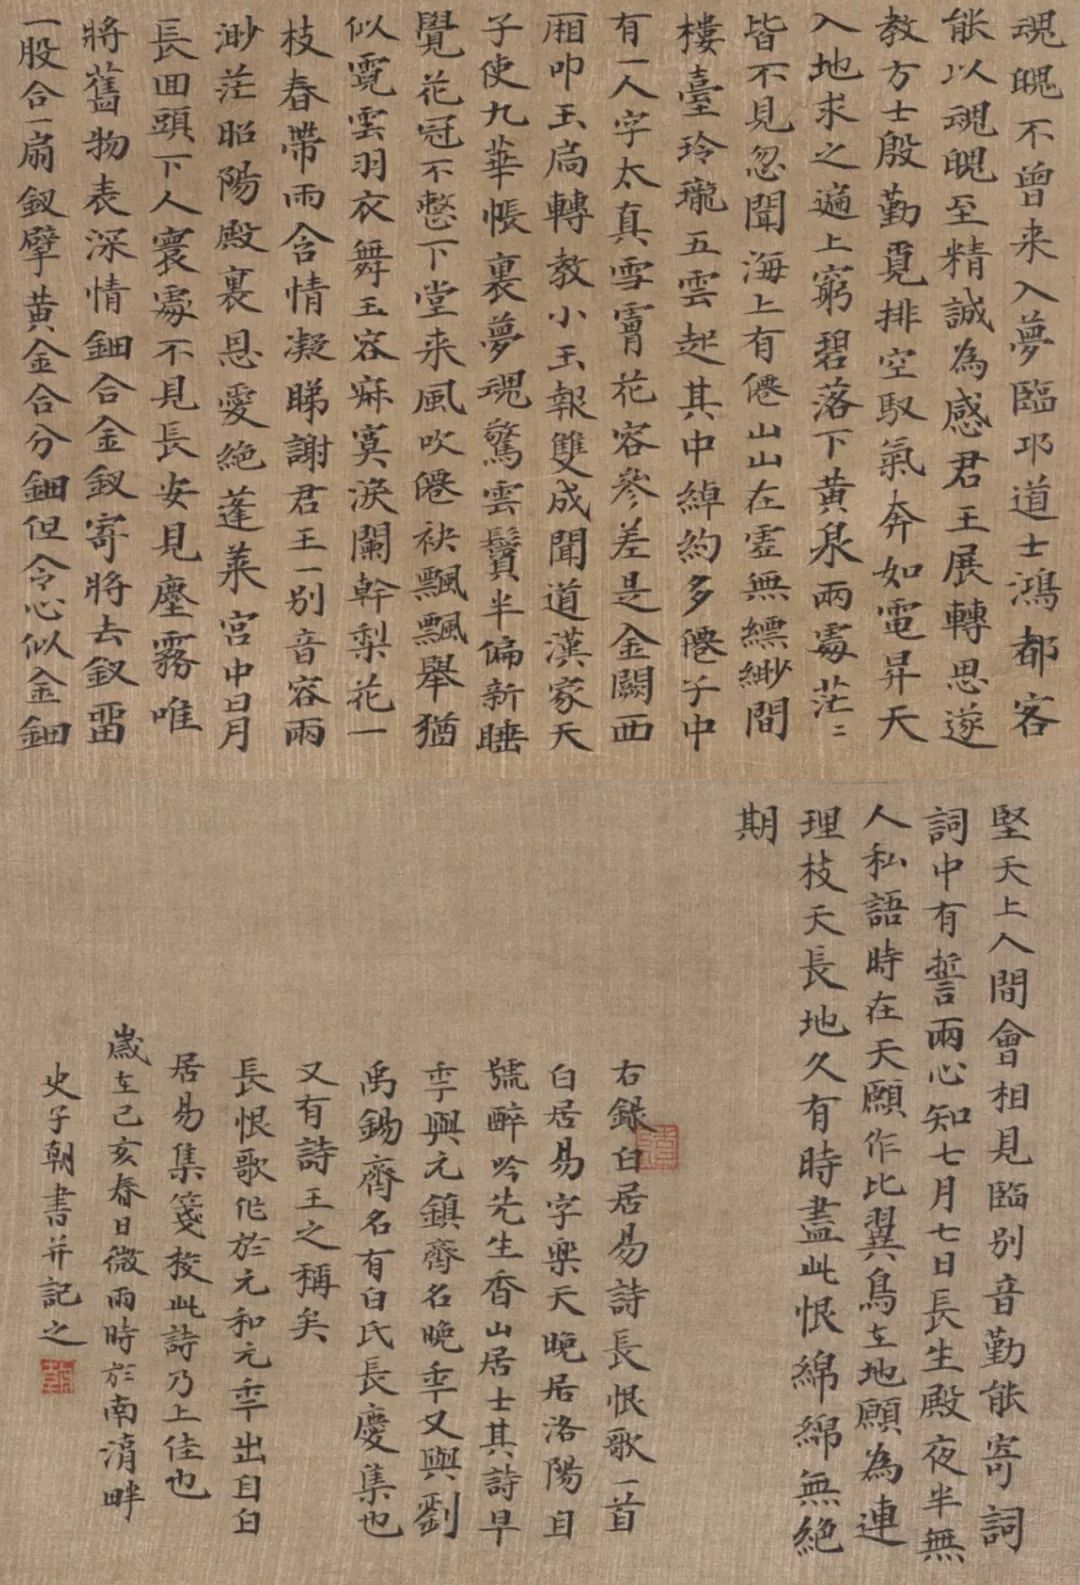 魂魄不曾来入夢臨邛道士鴻都客
能以魂魄至精誠為感君王展轉思遂
教方士殷勤覓排空馭氣奔如電昇天
入地求之遍上窮碧落下黄泉兩處茫〻
皆不見忽聞海上有僊山山在虛無縹緲間
樓臺玲瓏五雲起其中綽約多僊子中
有一人字太真雪膚花容參差是金闕西
廂叩玉扃轉教小玉報雙成聞道漢家天
子使九華帳裏夢魂驚雲鬢半偏新睡
覺花冠不整下堂来風吹僊袂飄飄舉猶
似霓雲羽衣舞玉容寂寞淚闌幹梨花一
枝春帶雨含情凝睇謝君王一别音容兩
渺茫昭陽殿裏恩愛絶蓬萊宮中日月
長回頭下人寰處不見長安見塵霧唯
將舊物表深情鈿合金釵寄將去釵畱
一股合一扇釵擘黄金合分鈿但令心似金鈿
堅天上人間會相見臨别音勤能寄詞
詞中有誓兩心知七月七日長生殿夜半無
人私語時在天願作比翼鳥在地願為連
理枝天長地久有時盡此恨綿綿無絶
期
右錄白居易詩長恨歌一首
白居易字樂天晚居洛陽自
號醉吟先生香山居士其詩早
年與元鎮齊名晚年又與劉
禹錫齊名有白氏長慶集也
又有詩王之稱矣
長恨歌作於元和元年出自白
居易集箋校此詩乃上佳也
歲在己亥春日微雨時於南湑畔
史子朝書并記之